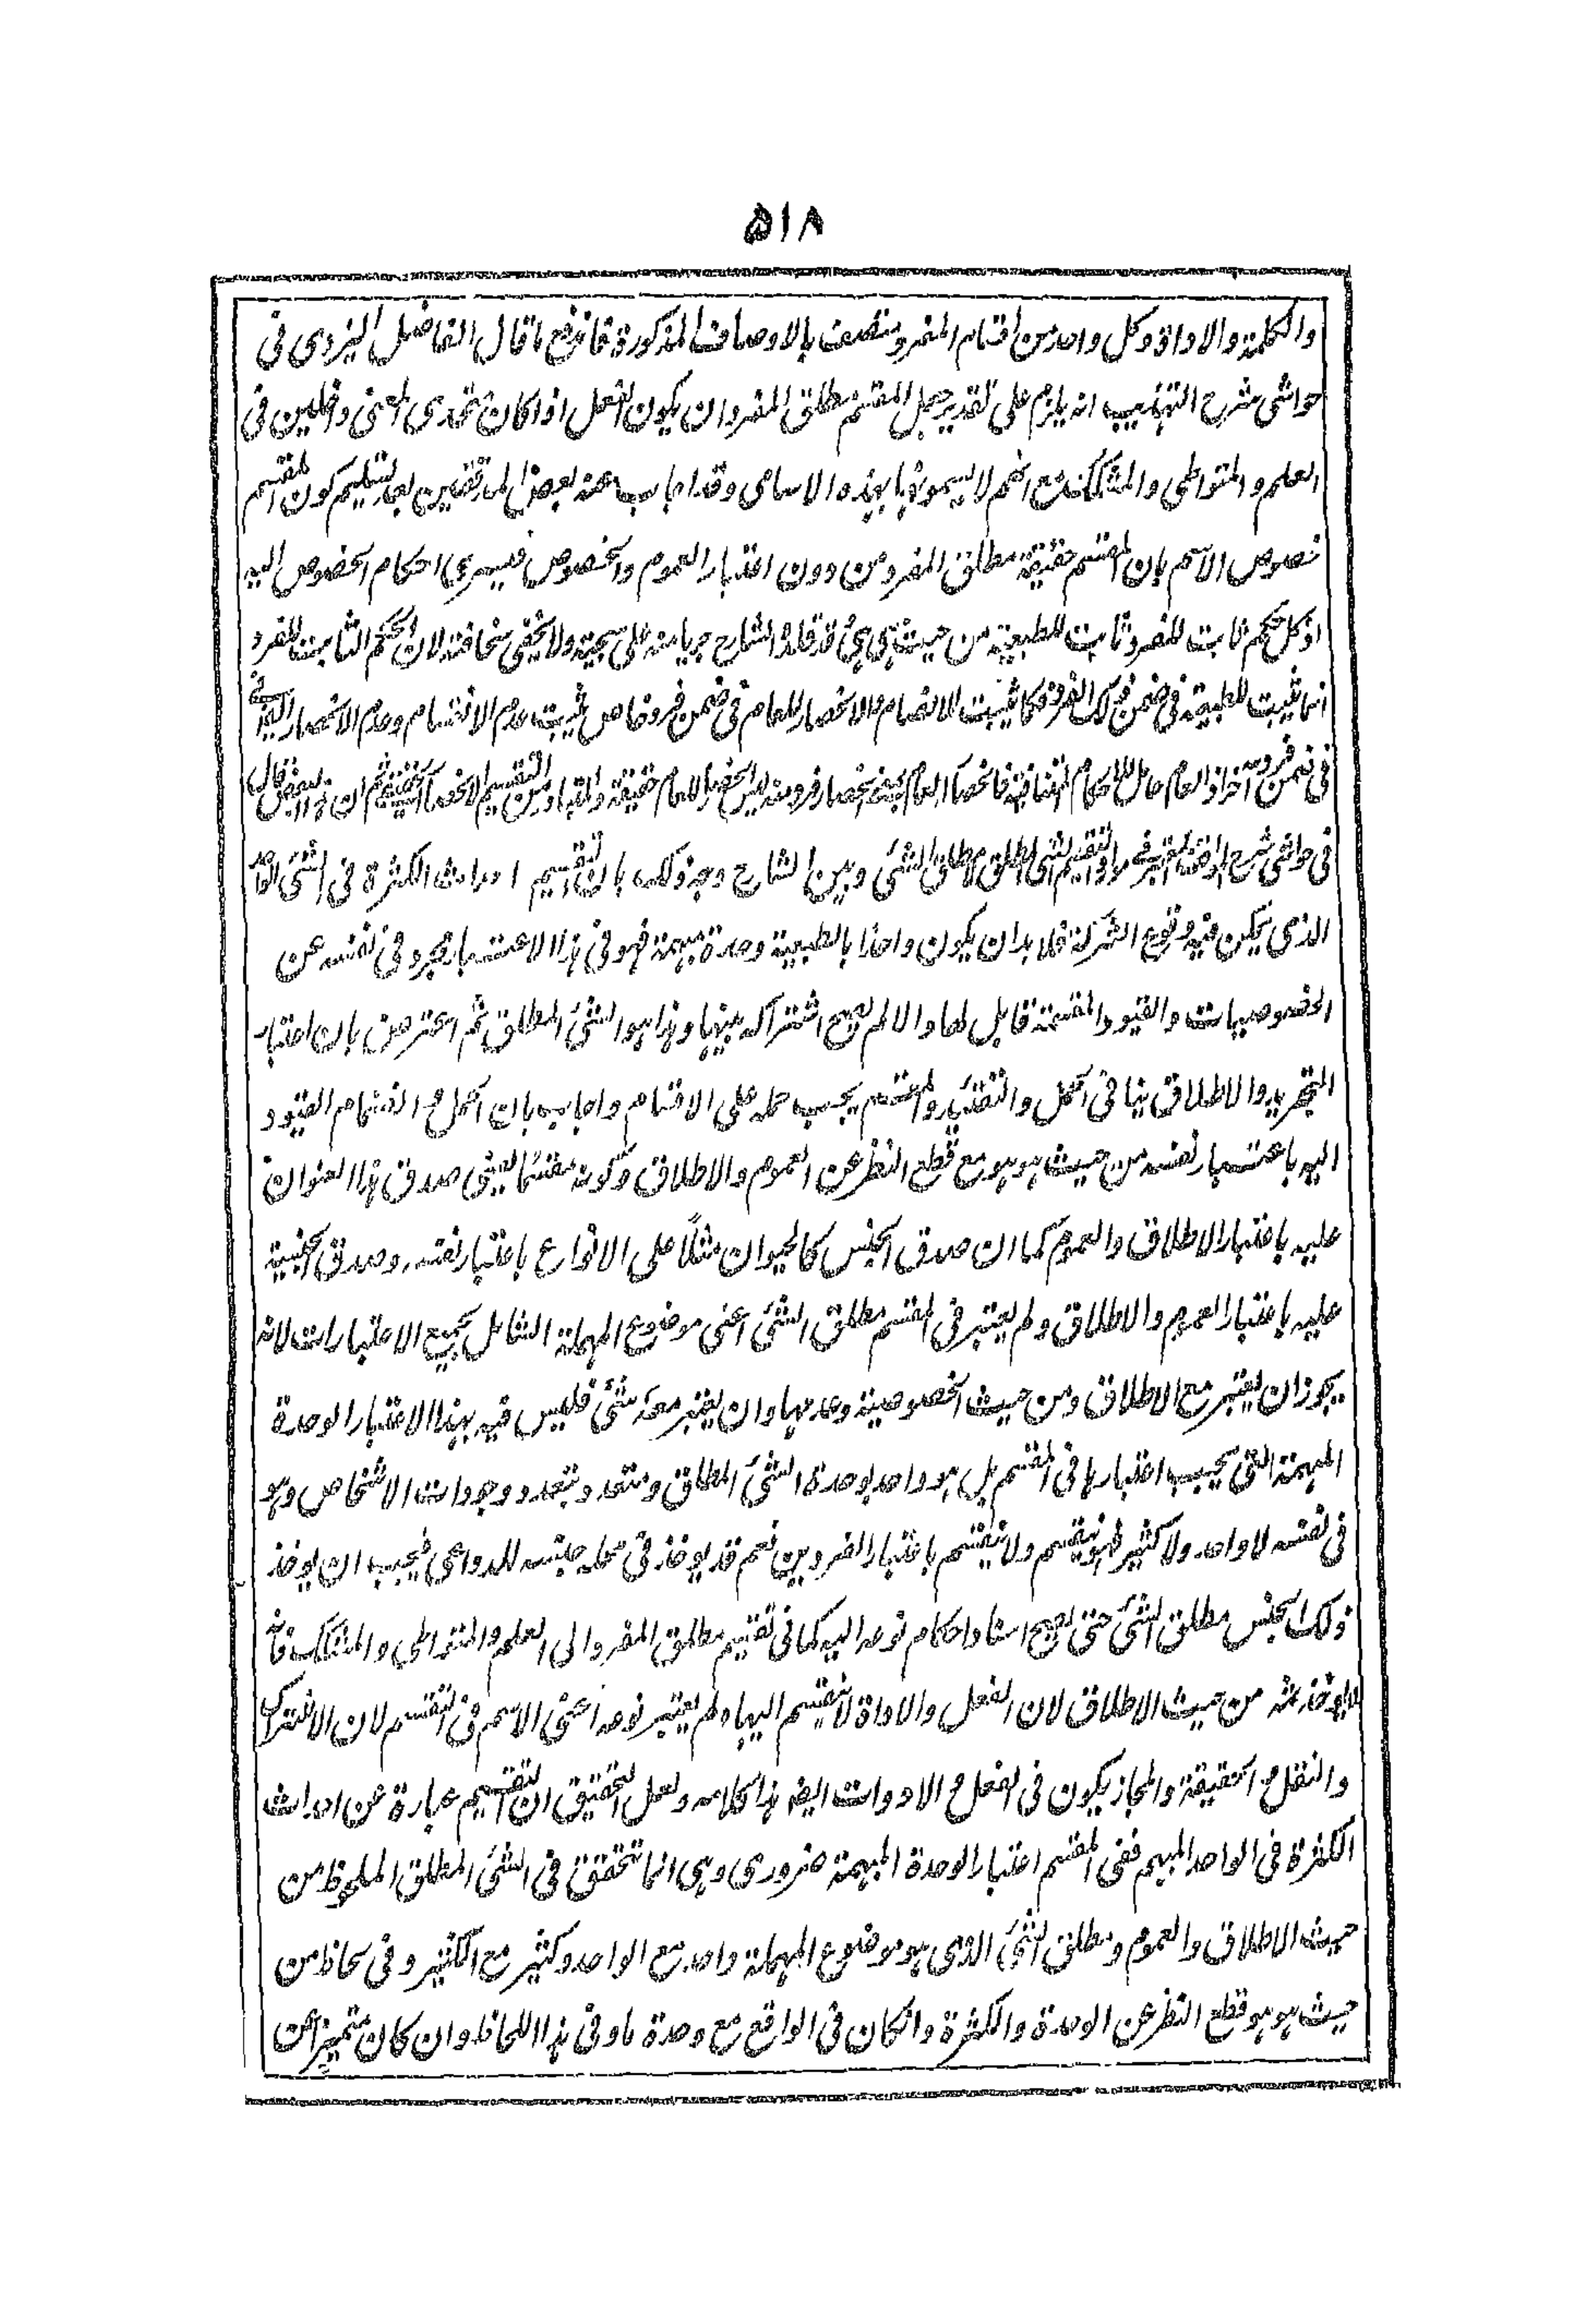 ۵۱۸
والكلمة والاداة وكل واحد من اقسام المفرد متصف بالاوصاف المذكورة فاندفع ما قال الفاضل اليزدى فى
حواشى شرح التهذيب انه يلزم على تقدير جعل المقسم مطلق المفرد ان يكون الفعل اذا كان متحدى المعنى داخلين فى
العلم والمتواطى والمشكك مع انهم لا يسمونها بهذه الاسامى وقد اجاب عنه بعض المدققين بعد تسليم كون المقسم
خصوص الاسم بان المقسم حقيقة مطلق المفرد من دون اعتبار العموم والخصوص فيسرى احكام الخصوص اليه
اذ كل حكم ثابت للفرد ثابت للطبيعة من حيث هى هى قد قلده الشارح جريا منه على سجية ولا يخفى سخافته لان الحكم الثابت للفرد
انما يثبت للطبيعة فى ضمن ذلك الفرد فكما يثبت الانقسام والانحصار للعام فى ضمن فرد خاص يثبت عدم الانقسام وعدم الانحصار
فى ضمن فرد اخر اذ العام حامل للاحكام المتنافية فانحصار العام بمعنى انحصار فرد منه ليس انحصارا للعام حقيقة
فى حواشى شرح المواقف المعتبر فى موارد التقسيم الشئ المطلق لا مطلق الشئ وبين الشارح وجه ذلك بان التقسيم احداث الكثرة فى الشئ الواحد
الذى يمكن فيه وقوع الشركة فلا بد ان يكون واحدا بالطبيعية وحدة مبهمة فهو فى هذا الاعتبار مجرد فى نفسه عن
الخصوصيات والقيود المقسمة قابل لها والا لم يصح اشتراكه بينها وهذا هو الشئ المطلق ثم اعترض بان اعتبار
التجريد والاطلاق ينافى الحمل والتقئيد والمقسم يجب حمله على الاقسام واجاب بان الحمل وانضمام القيود
اليه باعتبار نفسه من حيث هو هو مع قطع النظر عن العموم والاطلاق وكونه مقسما يعنى صدق هذا العنوان
عليه باعتبار الاطلاق والعموم كما ان صدق الجنس كالحيوان مثلا على الانواع باعتبار نفسه وصدق الجنسية
عليه باعتبار العموم والاطلاق ولم يعتبر فى المقسم مطلق الشئ اعنى موضوع المهملة الشامل بجميع الاعتبارات لانه
يجوز ان يعتبر مع الاطلاق ومن حيث الخصوصية وعدمها وان يعتبر معه شئ فليس فيه بهذا الاعتبار الوحدة
المبهمة التى يجب اعتبارها فى المقسم بل هو واحد بوحدة الشئ المطلق ومتعدد بتعدد وجودات الاشخاص وهو
فى نفسه لا واحد ولا كثير فهو ينقسم ولا ينقسم باعتبار الفردين نعم قد يوخذ فى محله جنسه للدواعى فيجب ان يوخذ
ذلك الجنس مطلق الشئ حتى يصح اسناد احكام نوعه اليه كما فى تقسيم مطلق المفرد الى العلم والمتواطى والمشكك فانه
لا يوخذ من حيث الاطلاق لان الفعل والاداة لا ينقسم اليها ولم يعتبر نوعه اعنى الاسم فى التقسيم لان الاشتراك
والنقل والحقيقة والمجاز يكون فى الفعل والادوات ايضا هذا كلامه ولعل التحقيق ان التقسيم عبارة عن احداث
الكثرة فى الواحد المبهم ففى المقسم اعتبار الوحدة المبهمة ضرورى وهى انما تتحقق فى الشئ المطلق الملحوظ من
حيث الاطلاق والعموم ومطلق الشئ الذى هو موضوع المهملة واحد مع الواحد وكثير مع الكثير وفى لحاظ من
حيث هو هو قطع النظر عن الوحدة والكثرة وانكان فى الواقع مع وحدة ما وفى هذا اللحاظ وان كان متميزا عن